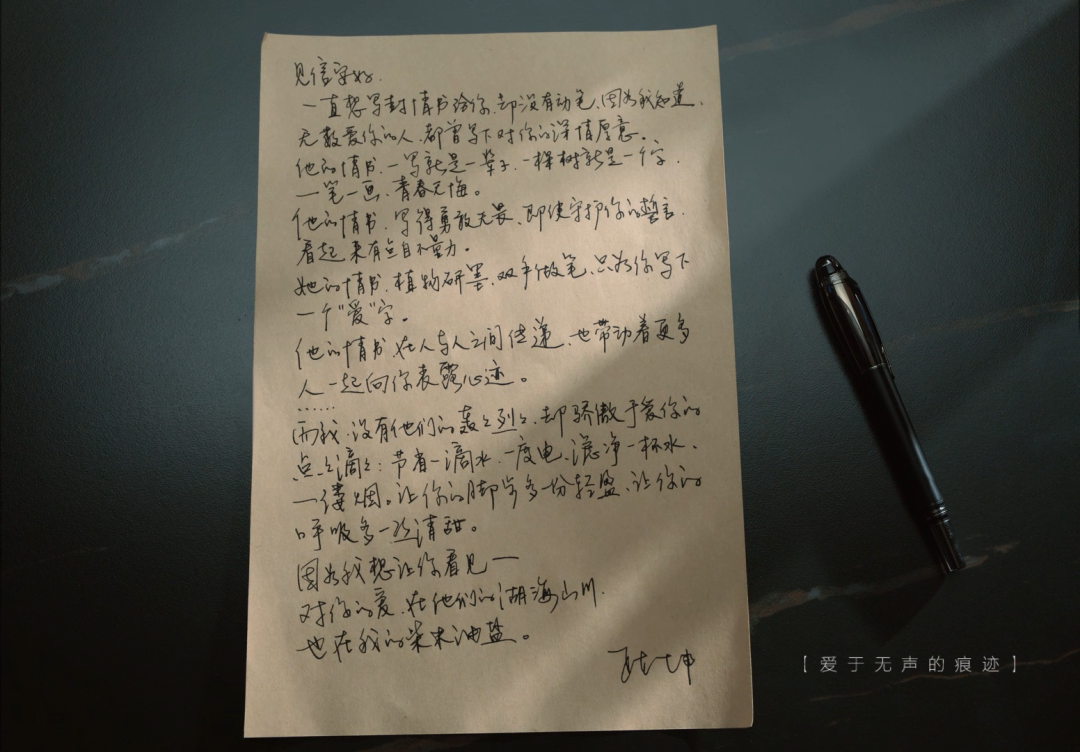 见信安好.
一直想写封情书给你,却没有动笔,因为我知道,
无数爱你的人,都曾写下对你的深情厚意。
他的情书,一写就是一辈子,一棵树就是一个字,
一笔一画,青春无悔。
他的情书,写得勇敢无畏,即使守护你的誓言,
看起来有点自不量力。
她的情书,植物研墨,双手做笔,只为你写下
一个“爱”字。
他的情书,在人与人之间传递,也带动着更多
人一起向你表露心迹。
……
而我,没有他们的轰轰烈烈,却骄傲于爱你的
点点滴滴:节省一滴水,一度电,滤净一杯水,
一缕烟。让你的脚步多一份轻盈,让你的
呼吸多一丝清甜。
因为我想让你看见——
对你的爱,在他们的湖海山川,
也在我的柴米油盐。
坤
【爱于无声的痕迹】